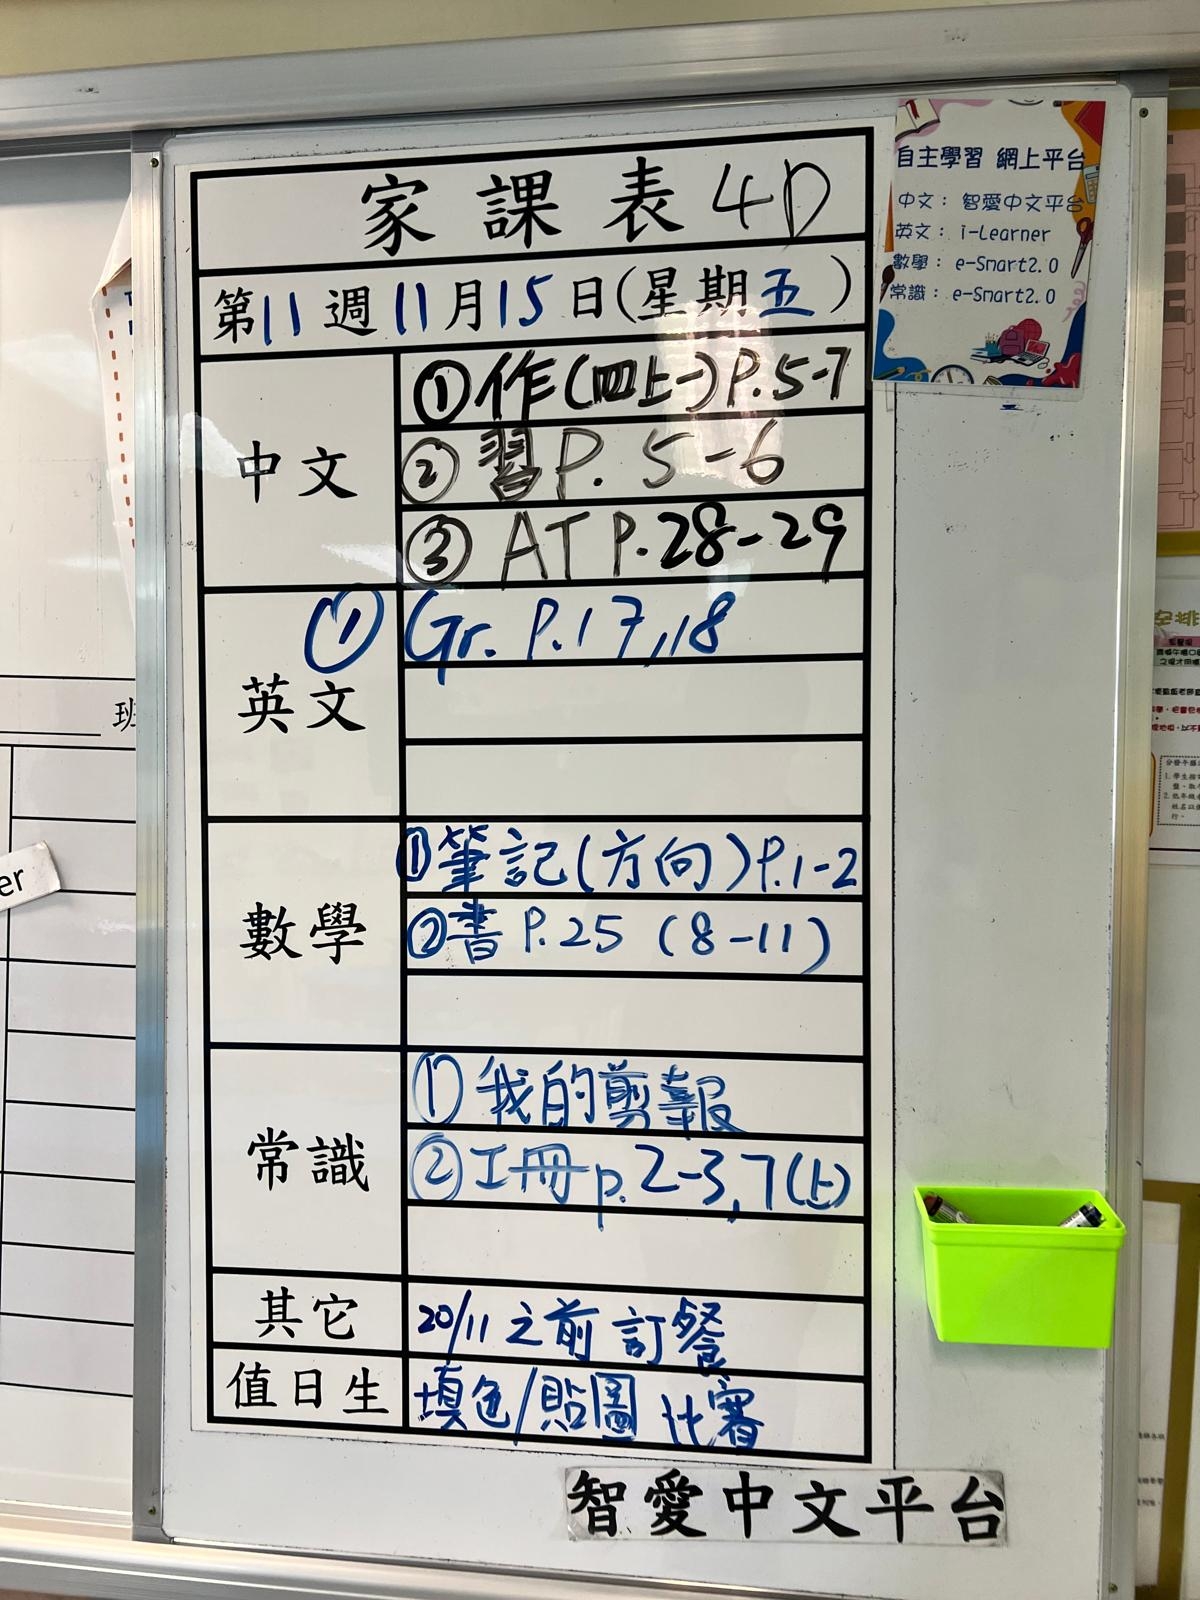 家課表 4D
第11週11月15日(星期五)
中文
①作(四上一)P.5-7
②習P.5-6
③ATP.28-29
英文
①Gr. P.17,18
數學
①筆記(方向)P.1-2
②書P.25 (8-11)
常識
①我的剪報
②工冊p.2-3,7(上)
其它
20/11之前訂餐
值日生
填色/貼圖 比賽
智愛中文平台
自主學習 網上平台
中文： 智愛中文平台
英文： i-Learner
數學： e-Smart2.0
常識： e-Smart2.0
班
er
安排